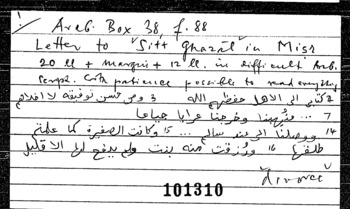 Arab. Box 38, f. 88
Letter to "Sitt Ghazal" in Misr
20 ll + margin + 12 ll. in difficult Arab.
script. With patience possible to read everything
2 كتابي الى الاهل حفظهم الله 3 ومن حسن توفيقه لا اعلام
7 ... نهبنا وخرجنا عرايا جياعا
14 ووصلنا الى بلد سالم ... 15 وكانت الصغيرة كما علمتم
طلقها 16 ورزقت منه بنت ولم يدفع لها الا قليل
divorce
101310